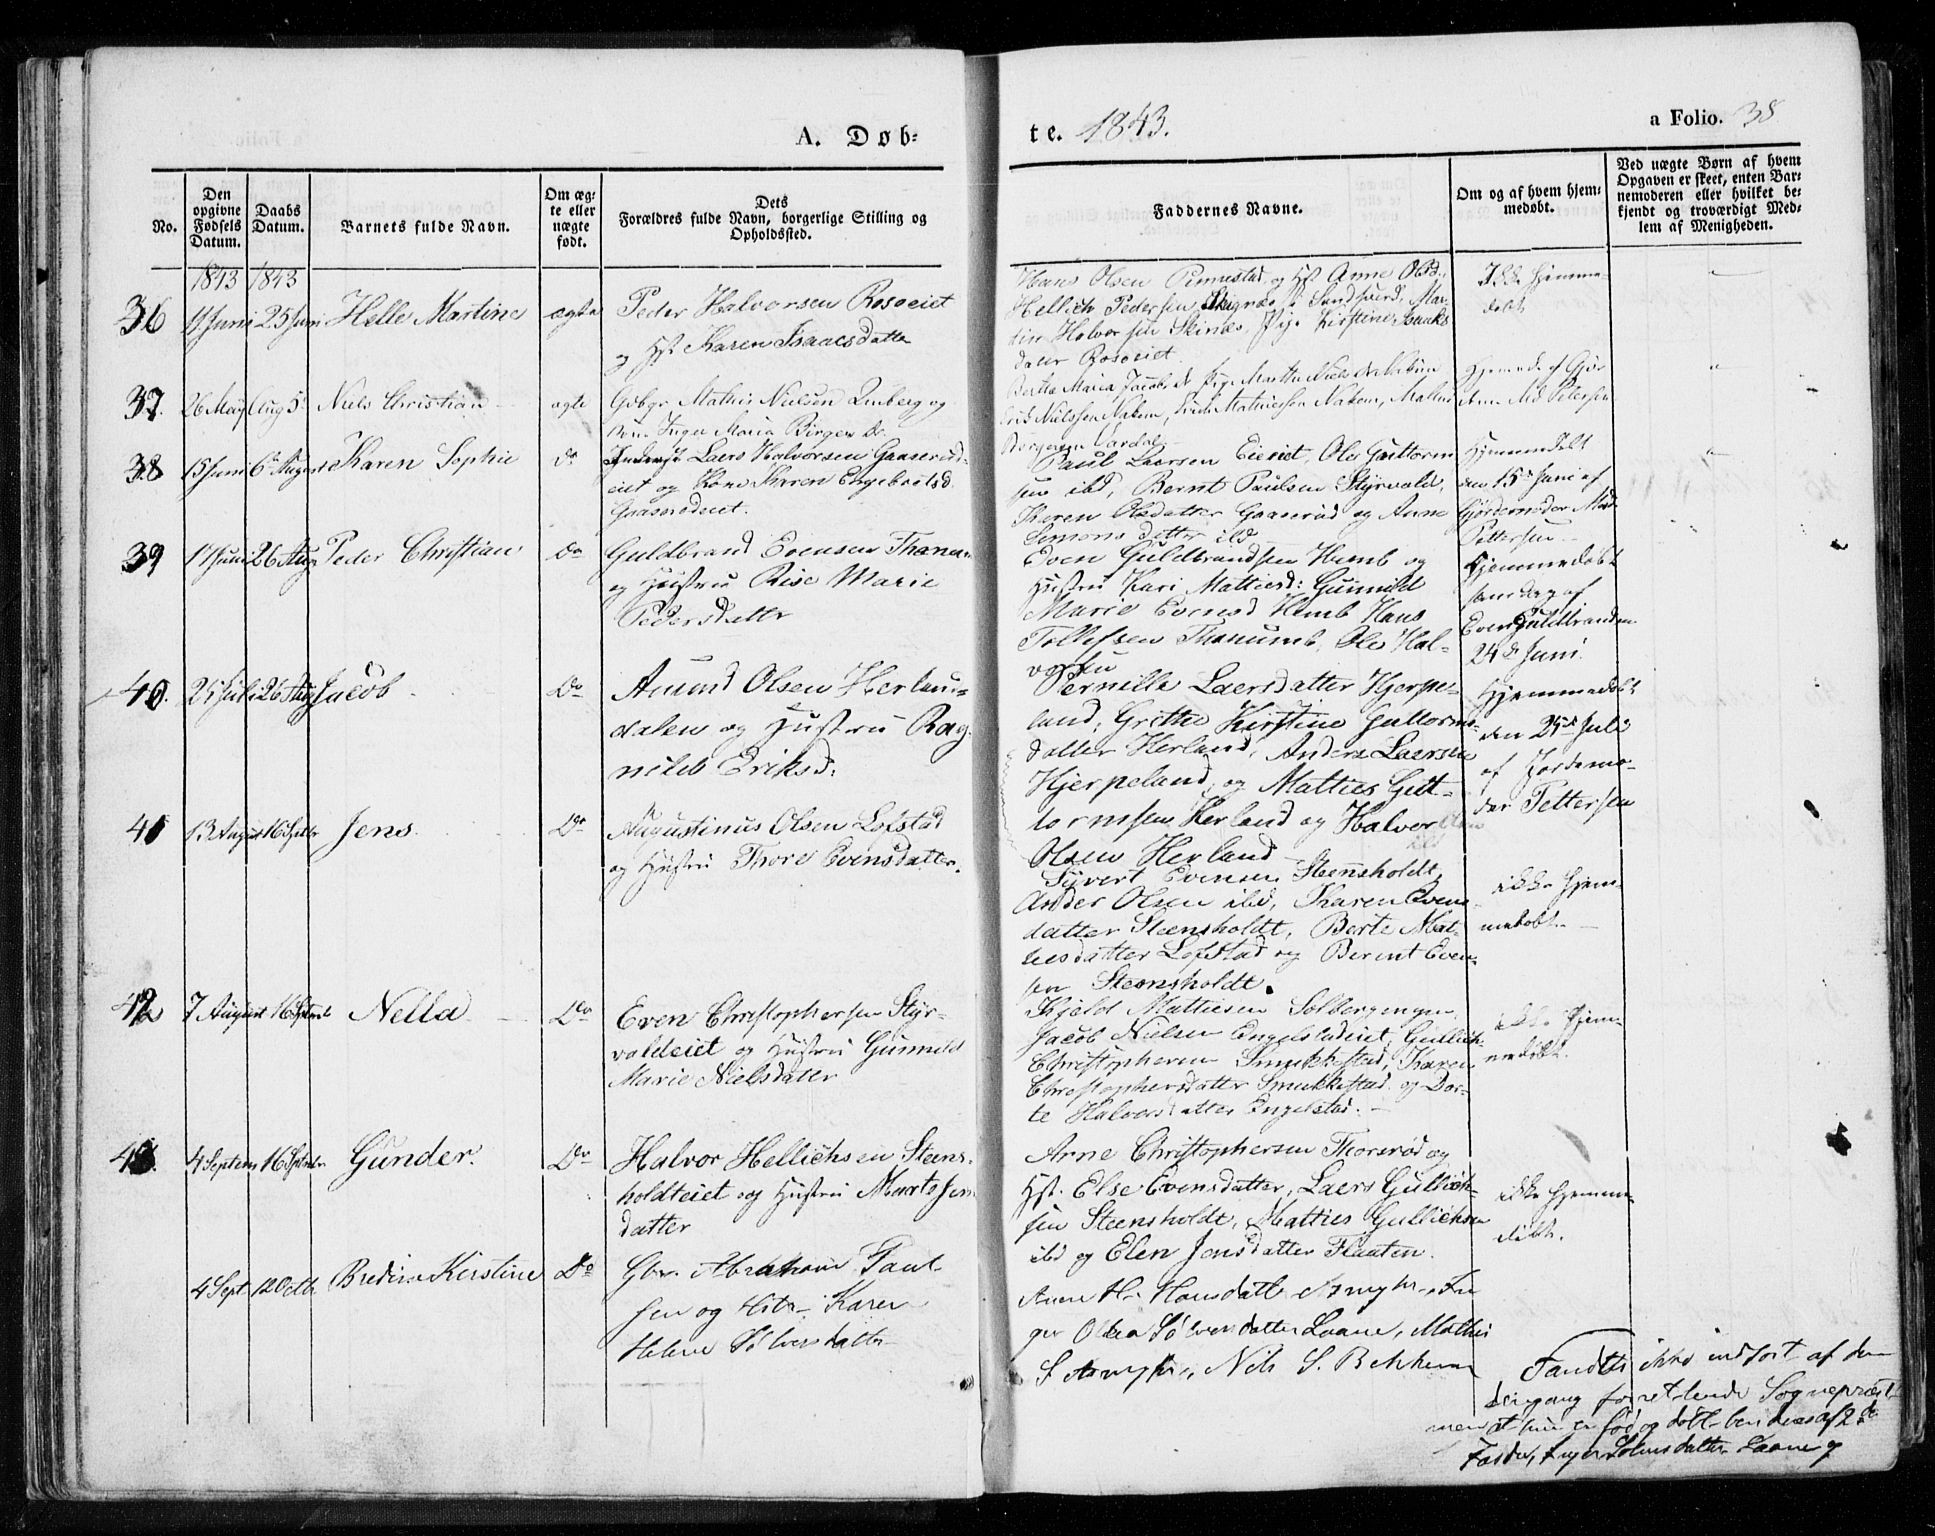 A. Døb-
te. 1843.
a Folio. 38
No.
Den opgivne Fødsels Datum.
Daabs Datum.
Barnets fulde Navn.
Om ægte eller uægte født.
Dets
Forældres fulde Navn, borgerlige Stilling og
Opholdssted.
Faddernes Navne.
Om og af hvem hjem-
medøbt.
Ved uægte Børn af hvem
Opgaven er skeet, enten Bar-
nemoderen eller hvilket be-
kjendt og troværdigt Med-
lem af Menigheden.
1843 1843
36 11 Juni 25 Juni Helle Martine ægte Peder Halvorsen Rosoeiet
og Hst Karen Isaacsdatter
Hans Olsen og Hst Anne Olsd.
Hellich Pedersen i Sandsverd, Mar-
tin Halvorsen Skinæs, Pige Kirstine Isaaks
dater Rosoeiet.
Ikke hjemme-
døbt
37. 26 May Aug 5 Niels Christian ægte Gdbgr. Mathis Nielsen Linberg og
Kone Inger Maria Birger dr.
Berthe Maria Jacobs dr Pige Marthe Niels dr
Nielssen Nakem, Erich Mathiesen Nakem,
Vardal
Hjemmed. af Gjor
Md Petersen
38 15 Juni 6 August Karen Sophie do Inderst Laers Halvorsen Gaaserud-
eiet og Kone Karen Engebretsd
Gaaserødeiet.
Paul Laersen Eieiet, Ole Guttorm
sen ibd, Bernt Paulsen Styrvold,
Karen Olsdatter Gaaserud og Anne
Simons datter ibd
Hjemmedøbt
den 15de Juni af
Gjordemoder Mad
Pettersen
39 17 Juni 26 Aug Peder Christian Do Guldbrand Evensen Thanem
og Hustru Rise Marie
Pedersdatter
Even Guldbrandsen Hemb og
Hustru Kari Mattiesd: Gunnild
Marie Evensd Hemb Hans
Tollefsen Thanumb, Ole Hal-
vorsen
Hjemmedøbt
samdag af
Even Guldbrandsen
24de Juni
40. 25 Juli 26 Aug Jacob Do Amund Olsen Herlan-
dalen og Hustru Rag
nild Eriksd:
Pernille Laersdatter Hjerpe-
land, Grethe Kirstine Guttorms-
datter Herland, Anders Laersen
Hjerpeland, og Matties Gut-
tormsen Herland og Halvor
Olsen Herland
Hjemmedøbt
den 25de Juli
af Jordemo-
der Pettersen
41 13 August 16 Septbr Jens Do Augustinus Olsen Lofstad
og Hustru Thore Evensdatter.
Syvert Evensen Steensholdt,
Ander Olsen ibd, Karen Evens
datter Steensholdt, Berte Mat-
tiesdatter Lofstad og Berent Even-
sen Steensholdt.
ikke hjem-
medøbt.
42 7 August 16 Septemb Nella Do Even Christophersen Styr-
voldeiet og Hustru Gunnild
Marie Nielsdatter
Kjeld Mattiesen Solbergmyren
Jacob Nielsen Engelstadeiet, Gullich
Christophersen Smukkestad, Karen
Christophersdatter Smukkestad og Dor-
te Halvorsdatter Engelstad.
ikke hjem-
medøbt.
43. 4 Septem 16 Septembr Gunder. Do Halvor Hellichsen Steens-
holdteiet og Hustru Marte Jens
datter
Arne Christophersen Thorsrød og
Hst. Else Evensdatter, Laers Gullich-
sen Steensholdt, Matties Gullichsen
ibd og Elen Jensdatter Flaaten.
ikke hjemme-
døbt.
4 Sept. 12 Octbr Bredine Kirstine Do Gbr. Abraham Paul-
sen og Hstr. Karen
Helene Sølversdatter
Anne H. Hansdatt. In-
ger Olea Sølversdatter Laane, Mathis
S. Nils S. Bekken
Fandtes ikke indført af den
dengang forrettende Sognepræst
men at hun er fød og døbt bevidnes af 2de
Fadder, Inger Sølversdatter Laane og